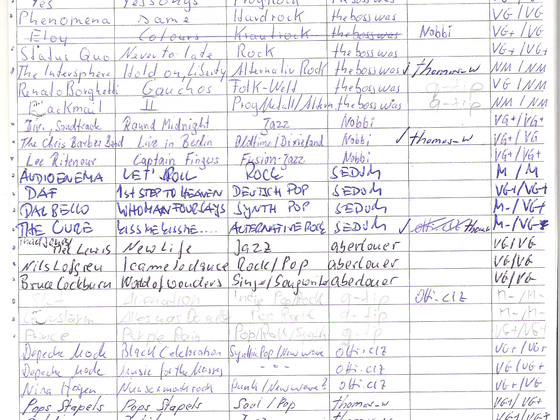 Yes Yessongs Progrock thebosswas VG/VG+
Phenomena Same Hardrock thebosswas VG+/VG+
Eloy Colours Krautrock thebosswas Nobbi VG+/VG+
Status Quo Never to late Rock thebosswas VG+/VG+
The Intersphere Hold on, Liberty Alternativ Rock thebosswas √ thomas-w NM/NM
Renato Borghetti Gauchos Folk-Welt thebosswas g-zip NM/NM
Blackmail II thebosswas g-zip NM/NM
Div. Soundtrack Round Midnight Jazz Nobbi VG+/VG+
The Chris Barber Band Live in Berlin Oldtime/Dixieland Nobbi √ thomas-w VG+/VG+
Lee Ritenour Captain Fingus Fusion-Jazz Nobbi VG+/VG+
AUDIOENEMA LET' ROLL ROCK SEDUM M/M
DAF 1ST STEP TO HEAVEN DEUTSCH POP SEDUM VG+/VG+
DALBELLO WHOMANFOURSAYS SYNTH POP SEDUM M-/VG+
THE CURE KISS ME KISS ME.... ALTERNATIVE ROCK SEDUM √ M-/VG+
Thad Jones Mel Lewis New Life Jazz aberlouer VG/VG
Nils Lofgren I came to dance Rock/Pop aberlouer VG/VG
Bruce Cockburn World of wonders Singer/Songwriter aberlouer VG/VG
Alienation g-zip Olli-clZ M-/M-
g-zip M-/M-
Prince Purple Rain g-zip VG+/VG+
Depeche Mode Black Celebration Synthie Pop/New wave Olli-clZ VG+/VG+
Depeche Mode Music for the Masses - " - Olli-clZ VG+/VG+
Nina Hagen Nunsexmonkrock Punk/New wave? Olli-clZ VG+/VG+
Pops Stapels Pops Stapels Soul/Pop thomas-w VG+/VG+